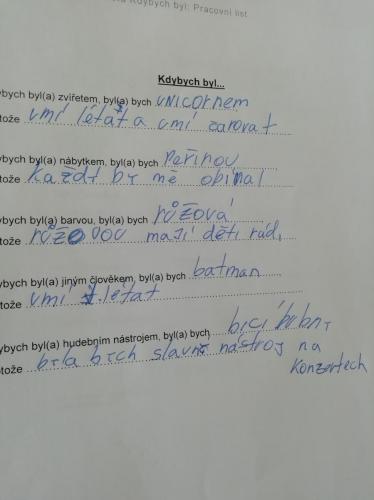 Kdybych byl: Pracovní list
Kdybych byl...
ybych byl(a) zvířetem, byl(a) bych unicornem
tože umí létat a umí čarovat
ybych byl(a) nábytkem, byl(a) bych Peřinou
tože každý by mě objímal
ybych byl(a) barvou, byl(a) bych růžová
tože růžovou mají děti rádi
ybych byl(a) jiným člověkem, byl(a) bych batman
tože umí létat
ybych byl(a) hudebním nástrojem, byl(a) bych bicí bubny
tože byla bych slavný nástroj na
konzertech